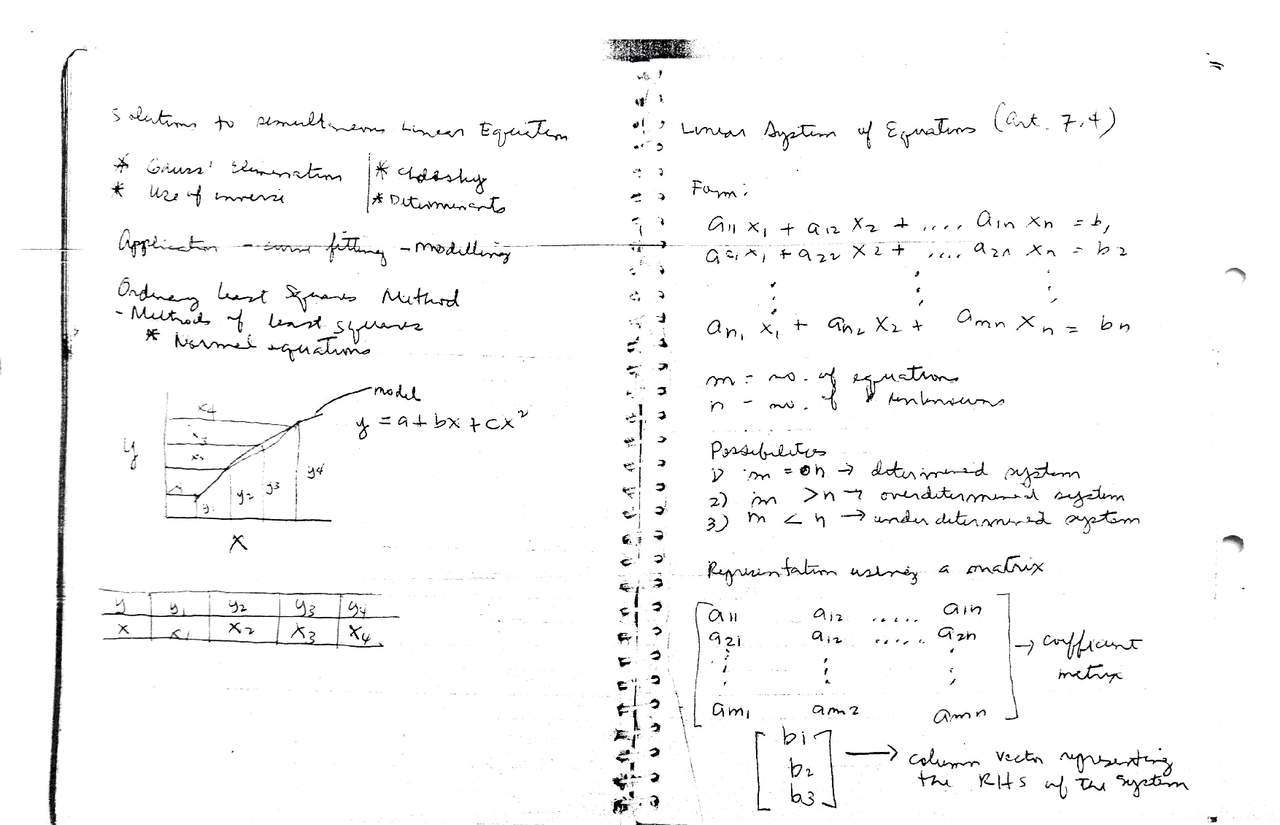 Solutions to simultaneous Linear Equation
* Gauss' Elimination
* Use of inverse
* Cholesky
* Determinants
Application - curve fitting - modelling
Ordinary Least Squares Method
- Methods of least squares
* Normal equations
model
y = a + bx + cx²
y
x4
x3
x2
x1
y1
y2
y3
y4
x
y y1 y2 y3 y4
x x1 x2 x3 x4
Linear System of Equations (art. 7.4)
Form:
a11 x1 + a12 x2 + .... a1n xn = b1
a21 x1 + a22 x2 + .... a2n xn = b2
an1 x1 + an2 x2 + amn xn = bn
m = no. of equations
n - no. of unknowns
Possibilities
1) m = n → determined system
2) m > n → overdetermined system
3) m < n → underdetermined system
Representation using a matrix
a11 a12 ..... a1n
a21 a12 ..... a2n
am1 am2 amn
→ coefficient metrix
b1
b2
b3
→ column vector representing
the RHS of the system